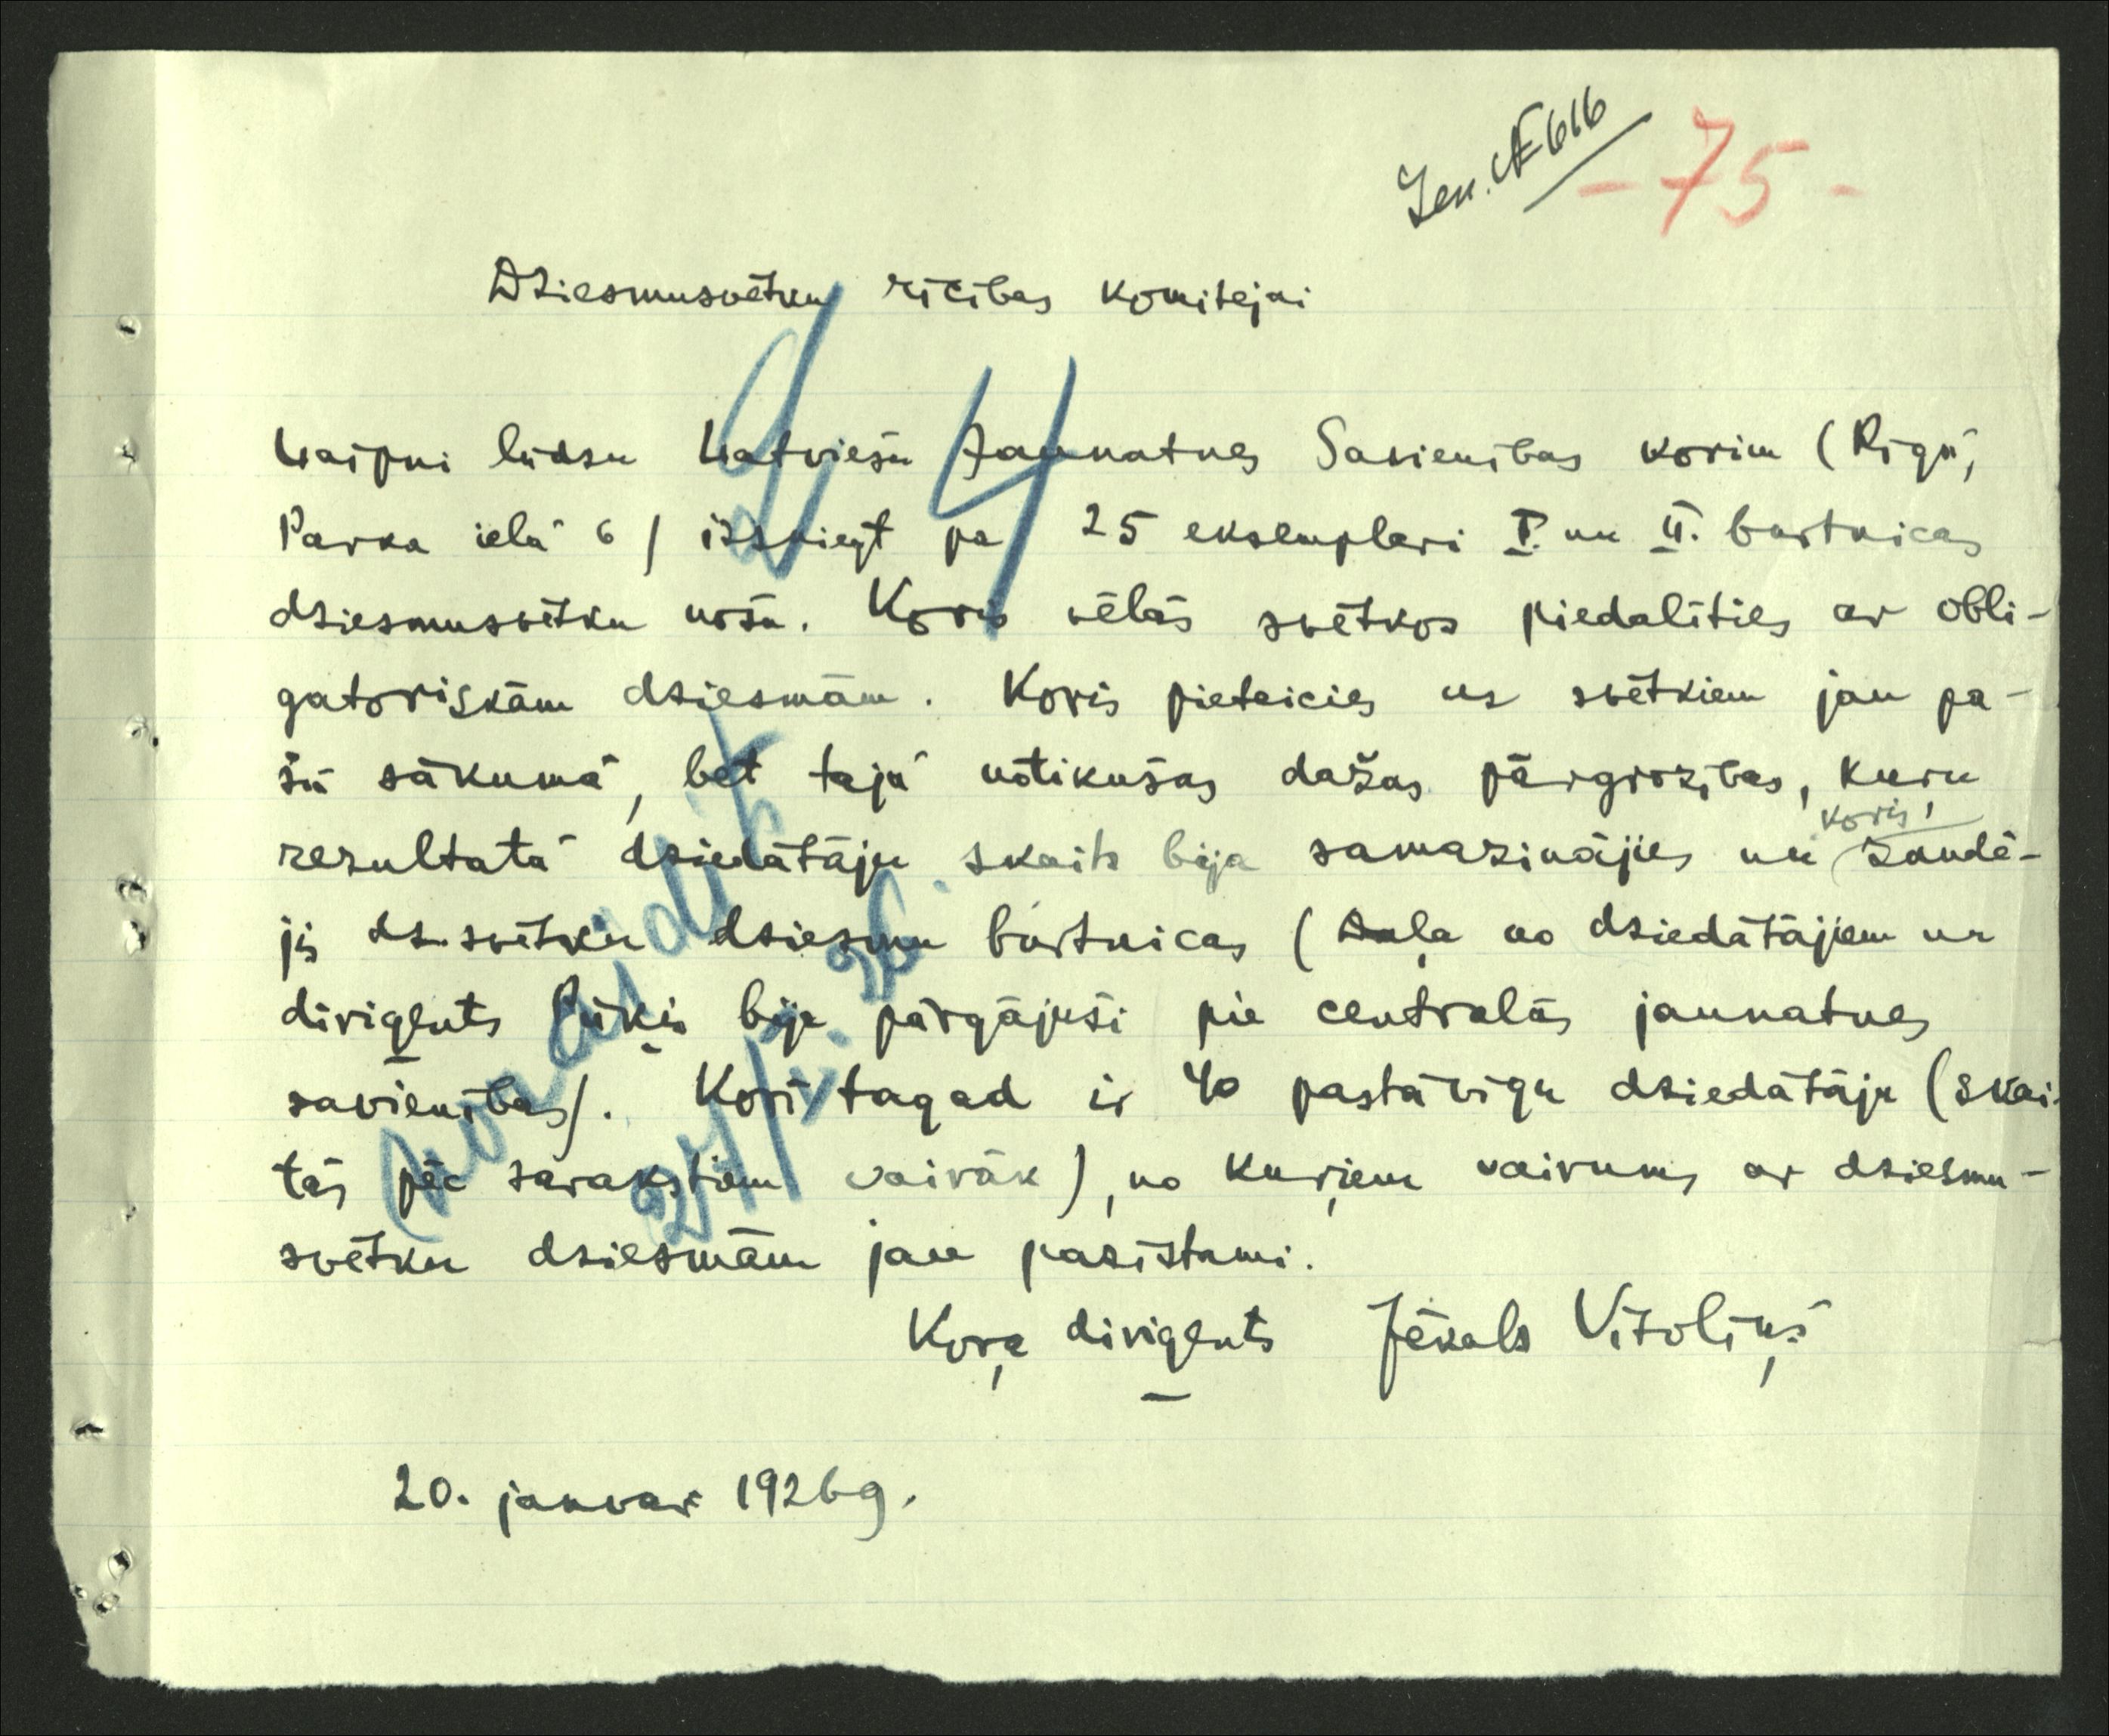 Ien. № 616
- 75 -
Dziesmusvētku rīcības komitejai
24
Laipni lūdzu Latviešu Jaunatnes Savienības korim (Rīgā,
Parka ielā 6) izsniegt pa 25 eksemplari I. un II. burtnicas
dziesmusvētku nošu. Koris vēlās svētkos piedalīties ar obli-
gatoriskām dziesmām. Koris pieteicies uz svētkiem jau pa-
šā sākumā, bet tajā notikušas dažas pārgrozības, kuru
koris,
rezultatā dziedātāju skaits bija samazinājies un zaudē-
jis dz.svētku dziesmu burtnicas (Daļa no dziedātājiem un
diriģents bija pārgājuši pie centralās jaunatnes
savienības). Korī tagad ir 40 pastāvīgu dziedātāju (skai-
tās pēc sarakstiem vairāk), no kuŗiem vairums ar dziesmu-
svētku dziesmām jau pazīstami.
Koŗa diriģents Jēkabs Vītoliņš
20. janvarī 1926 g.